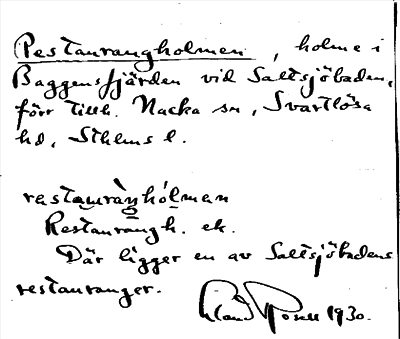 Restaurangholmen, holme i
Baggensfjärden vid Saltsjöbaden,
förr tillh. Nacka sn, Svartlösa
hd, Sthlms l.
restauràŋhólmen
Restaurangh. ek.
Där ligger en av Saltsjöbadens
restauranger.
1930.